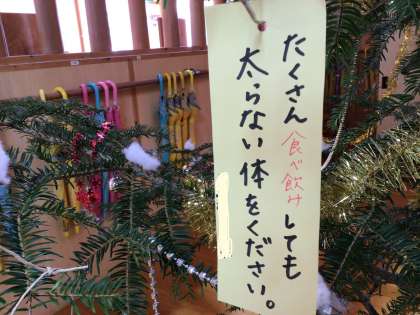 たくさん食べ飲みしても
太らない体をください。